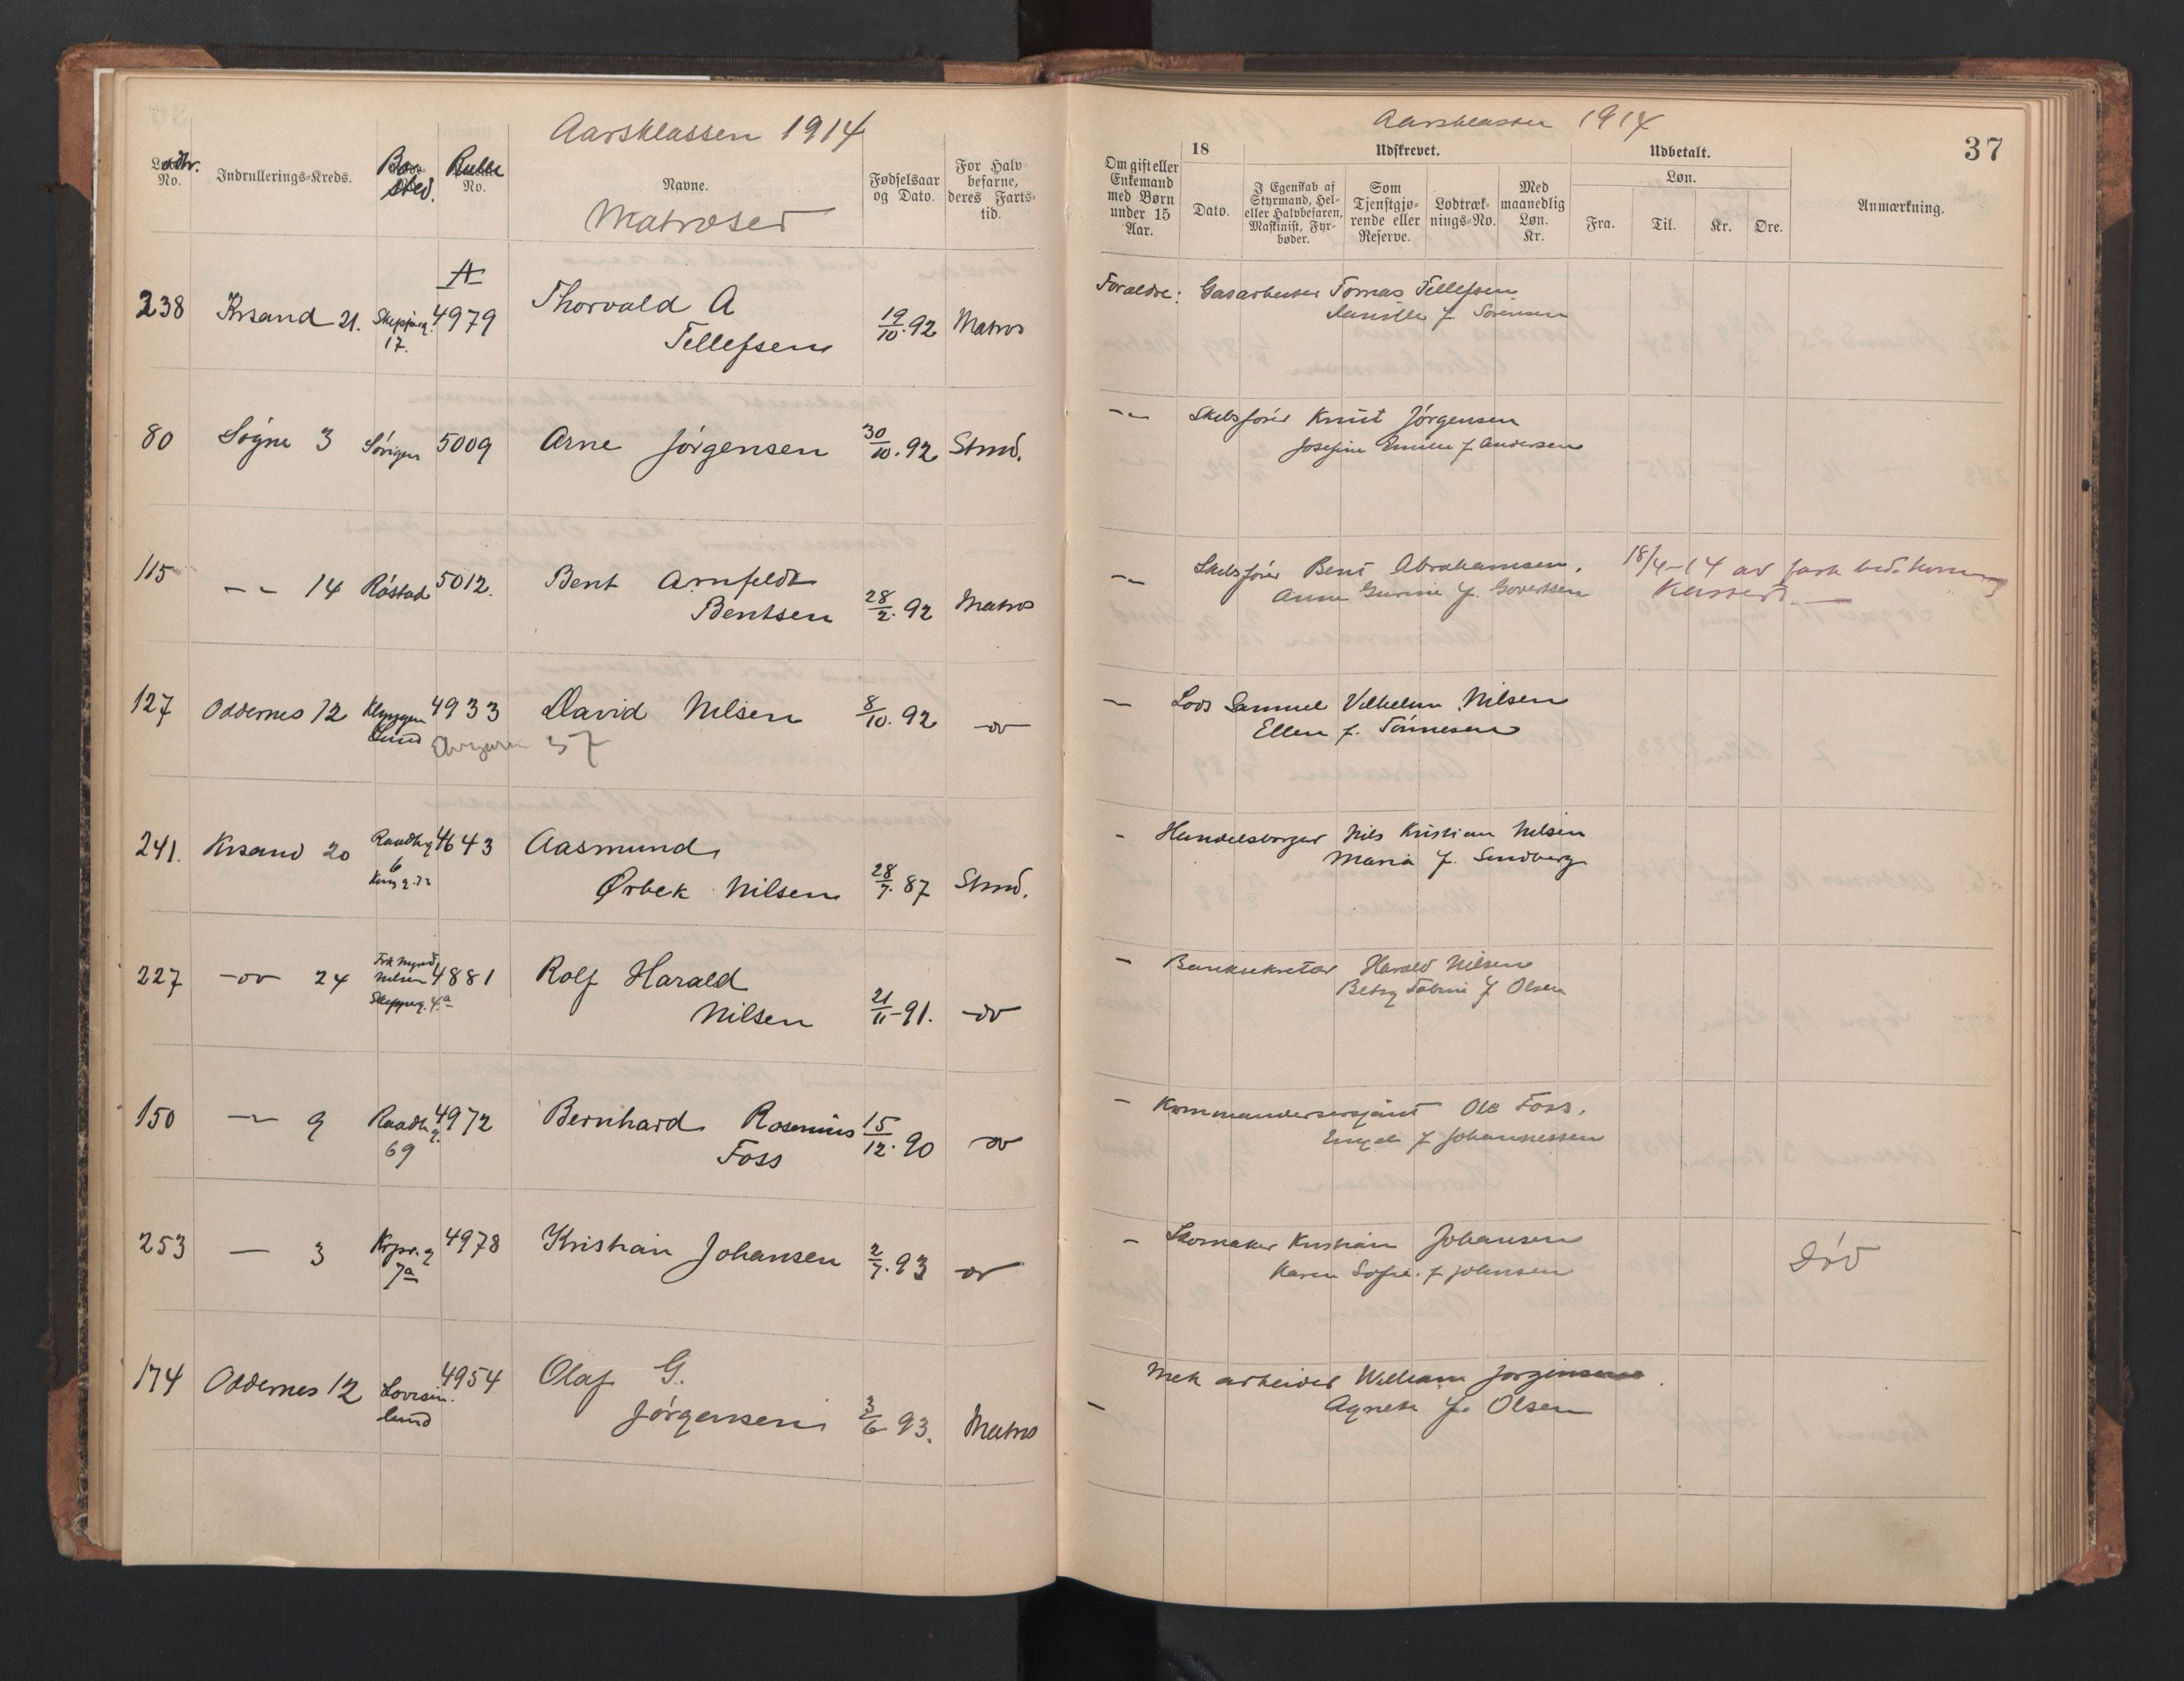 Aarsklassen 1914
Lodtr. No.
Indrullerings-Kreds.
Bosted.
Rulle No.
Navne.
Matroser
Fødselsaar og Dato.
For Halvbefarne, deres Fartstid.
A
238 Krsand 21. Skipperg. 17. 4979 Thorvald A Tellefsen 19/10.92 Matros
80 Søgne 3 5009 Arne Jørgensen 30/10.92 Strmd.
115 -"- 14 Røstad 5012. Bent Arnfeldt Bentsen 28/2.92 Matros
127 Oddernes 12 Lund 4933 David Nilsen 8/10.92 -dv
37
241. Krsand 20 Raadhg 6 4643 Aasmund Ørbek Nilsen 28/7.87 Strmd.
227 -dv 24 Nilsen Skipperg. 4a 4881 Rolf Harald Nilsen 21/11-91. -dv
150 -"- 9 Raadhg. 69 4972 Bernhard Rosenius Foss 15/12.90 dv
253 — 3 Krpr.g 7a 4978 Kristian Johansen 2/7.93 dv
174 Oddernes 12 Lovisenlund 4954 Olaf G. Jørgensen 3/6 93. Matros
Aarsklassen 1914
37
Om gift eller Enkemand med Børn under 15 Aar.
18
Dato.
Udskrevet.
I Egenskab af Styrmand, Hel- eller Halvbefaren, Maskinist, Fyrbøder.
Som Tjenstgjørende eller Reserve.
Lodtræknings-No.
Med maanedlig Løn. Kr.
Udbetalt.
Løn.
Fra.
Til.
Kr.
Øre.
Anmærkning.
Foraldre: Gasarbeider Tomas Tellefsen
f. Sørensen
-"- Skibsfører Knut Jørgensen
Josefine Emilie f Andersen
-"- Skibsfører Bent Abrahamsen. 18/4-14 av
Anne Gurine f. Govertsen Kassert. —
— Lods Samuel Vilhelm Nilsen
Ellen f. Tønnesen
- Handelsborger Nils Kristian Nilsen
Maria f. Sundberg
— Banksekretær Harald Nilsen
Betsy f Olsen
- Kommandersersjant Ole Foss.
f Johannessen
- Skomaker Kristian Johansen Død
Karen Sofie f Johnsen
— Mek arbeider William Jørgensen.
Agnete f. Olsen